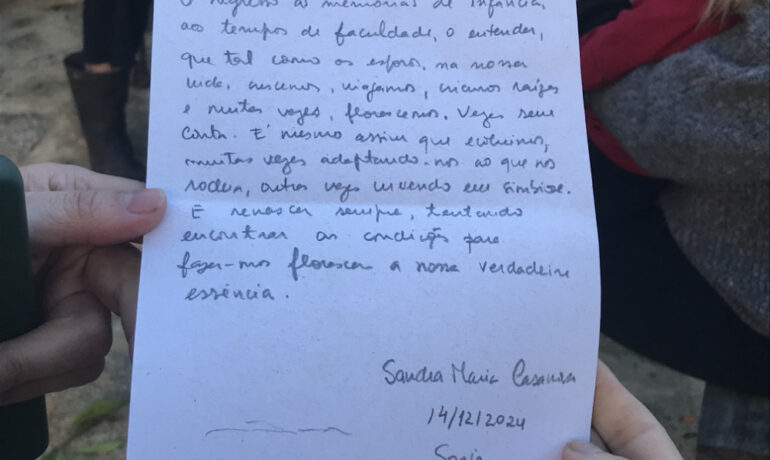 O regresso às memórias de infância,
ao tempos de faculdade, o entender,
que tal como os esporos, na nossa
vida, crescemos, viajamos, criamos raízes
e muitas vezes, florescemos. Vezes sem
conta. É mesmo assim que evoluimos,
muitas vezes adaptando-nos ao que nos
rodeia, outras vezes vivendo em simbiose.
E renascer sempre, tentando
encontrar as condições para
fazer-mos florescer a nossa verdadeira
essência.
Sandra Maria Casanova
14/12/2024